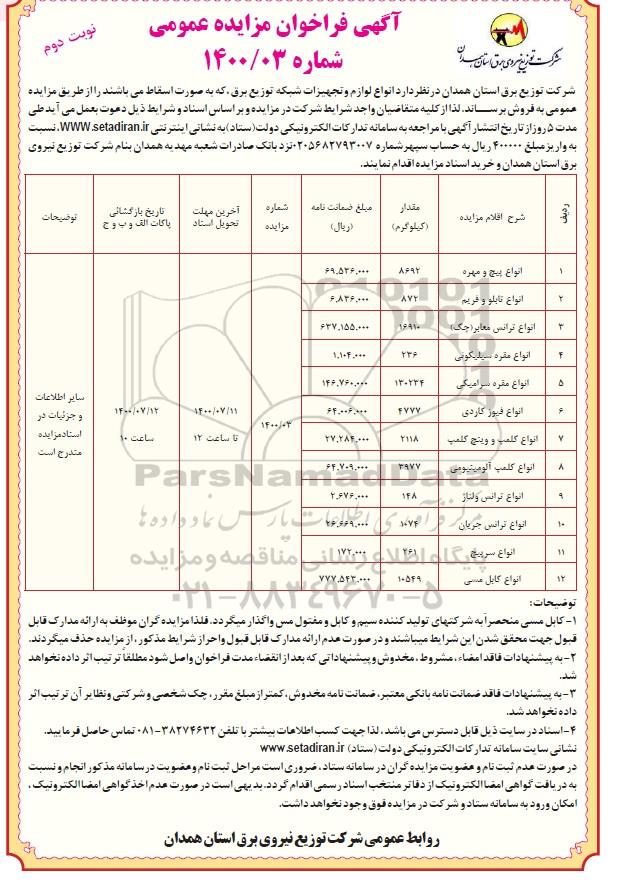 آگهی فراخوان مزایده عمومی
شماره ۱۴۰۰/۰۳
نوبت دوم
شرکت توزیع نیروی برق استان همدان
شرکت توزیع برق استان همدان در نظر دارد انواع لوازم و تجهیزات شبکه توزیع برق ، که به صورت اسقاط می باشند را از طریق مزایده
عمومی به فروش برســاند. لذا از کلیه متقاضیان واجد شرایط شرکت در مزایده و بر اساس اسناد و شرایط ذیل دعوت بعمل می آید طی
مدت ۵ روز از تاریخ انتشار آگهی با مراجعه به سامانه تدارکات الکترونیکی دولت (ستاد) به نشانی اینترنتی WWW.setadiran.ir، نسبت
به واریز مبلغ ۴۰۰۰۰۰ ریال به حساب سپهر شماره ۰۲۰۵۶۸۲۷۹۳۰۰۷ نزد بانک صادرات شعبه مهدیه همدان بنام شرکت توزیع نیروی
برق استان همدان و خرید اسناد مزایده اقدام نمایند.
ردیف | شرح اقلام مزایده | مقدار (کیلوگرم) | مبلغ ضمانت نامه (ریال) | شماره مزایده | آخرین مهلت تحویل اسناد | تاریخ بازگشائی پاکات الف و ب و ج | توضیحات
۱ | انواع پیچ و مهره | ۸۶۹۲ | ۶۹.۵۳۶.۰۰۰
۲ | انواع تابلو و فریم | ۸۷۲ | ۶.۸۳۶.۰۰۰
۳ | انواع ترانس معابر(چک) | ۱۶۹۱۰ | ۶۳۷.۱۵۵.۰۰۰
۴ | انواع مقره سیلیکونی | ۲۳۶ | ۱.۱۰۴.۰۰۰
۵ | انواع مقره سرامیکی | ۱۳۰۲۳۴ | ۱۴۶.۷۶۰.۰۰۰
۶ | انواع فیوز کاردی | ۴۷۷۷ | ۶۴.۰۰۶.۰۰۰
۷ | انواع کلمپ و وینچ کلمپ | ۲۱۱۸ | ۲۷.۲۸۴.۰۰۰
۸ | انواع کلمپ آلومینیومی | ۳۹۷۷ | ۶۴.۷۰۹.۰۰۰
۹ | انواع ترانس ولتاژ | ۱۴۸ | ۲.۶۷۶.۰۰۰
۱۰ | انواع ترانس جریان | ۱۰۷۴ | ۲۶.۶۶۹.۰۰۰
۱۱ | انواع سرپیچ | ۲۶۱ | ۱۷۲.۰۰۰
۱۲ | انواع کابل مسی | ۱۰۵۴۹ | ۷۷۷.۵۴۳.۰۰۰
۱۴۰۰/۰۳
۱۴۰۰/۰۷/۱۱
تا ساعت ۱۲
۱۴۰۰/۰۷/۱۲
ساعت ۱۰
سایر اطلاعات
و جزئیات در
اسناد مزایده
مندرج است
ParsNamadData
مرکز فرآوری اطلاعات پارس نماد داده ها
پایگاه اطلاع رسانی مناقصه و مزایده
۰۲۱-۸۸۳۴۹۶۷۰-۵
توضیحات:
۱- کابل مسی منحصراً به شرکتهای تولید کننده سیم و کابل و مفتول مس واگذار میگردد. فلذا مزایده گران موظف به ارائه مدارک قابل
قبول جهت محقق شدن این شرایط میباشند و در صورت عدم ارائه مدارک قابل قبول و احراز شرایط مذکور ، از مزایده حذف میگردند.
۲- به پیشنهادات فاقد امضاء ، مشروط ، مخدوش و پیشنهاداتی که بعد از انقضاء مدت فراخوان واصل شود مطلقاً ترتیب اثر داده نخواهد
شد.
۳- به پیشنهادات فاقد ضمانت نامه بانکی معتبر، ضمانت نامه مخدوش ، کمتر از مبلغ مقرر ، چک شخصی و شرکتی و نظایر آن ترتیب اثر
داده نخواهد شد.
۴- اسناد در سایت ذیل قابل دسترس می باشد ، لذا جهت کسب اطلاعات بیشتر با تلفن ۳۸۲۷۴۶۳۲-۰۸۱ تماس حاصل فرمایید.
نشانی سایت سامانه تدارکات الکترونیکی دولت (ستاد) www.setadiran.ir
در صورت عدم ثبت نام و عضویت مزایده گران در سامانه ستاد ، ضروری است مراحل ثبت نام و عضویت در سامانه مذکور انجام و نسبت
به دریافت گواهی امضا الکترونیک از دفاتر منتخب اسناد رسمی اقدام گردد. بدیهی است در صورت عدم اخذ گواهی امضا الکترونیک ،
امکان ورود به سامانه ستاد و شرکت در مزایده فوق وجود نخواهد داشت.
روابط عمومی شرکت توزیع نیروی برق استان همدان